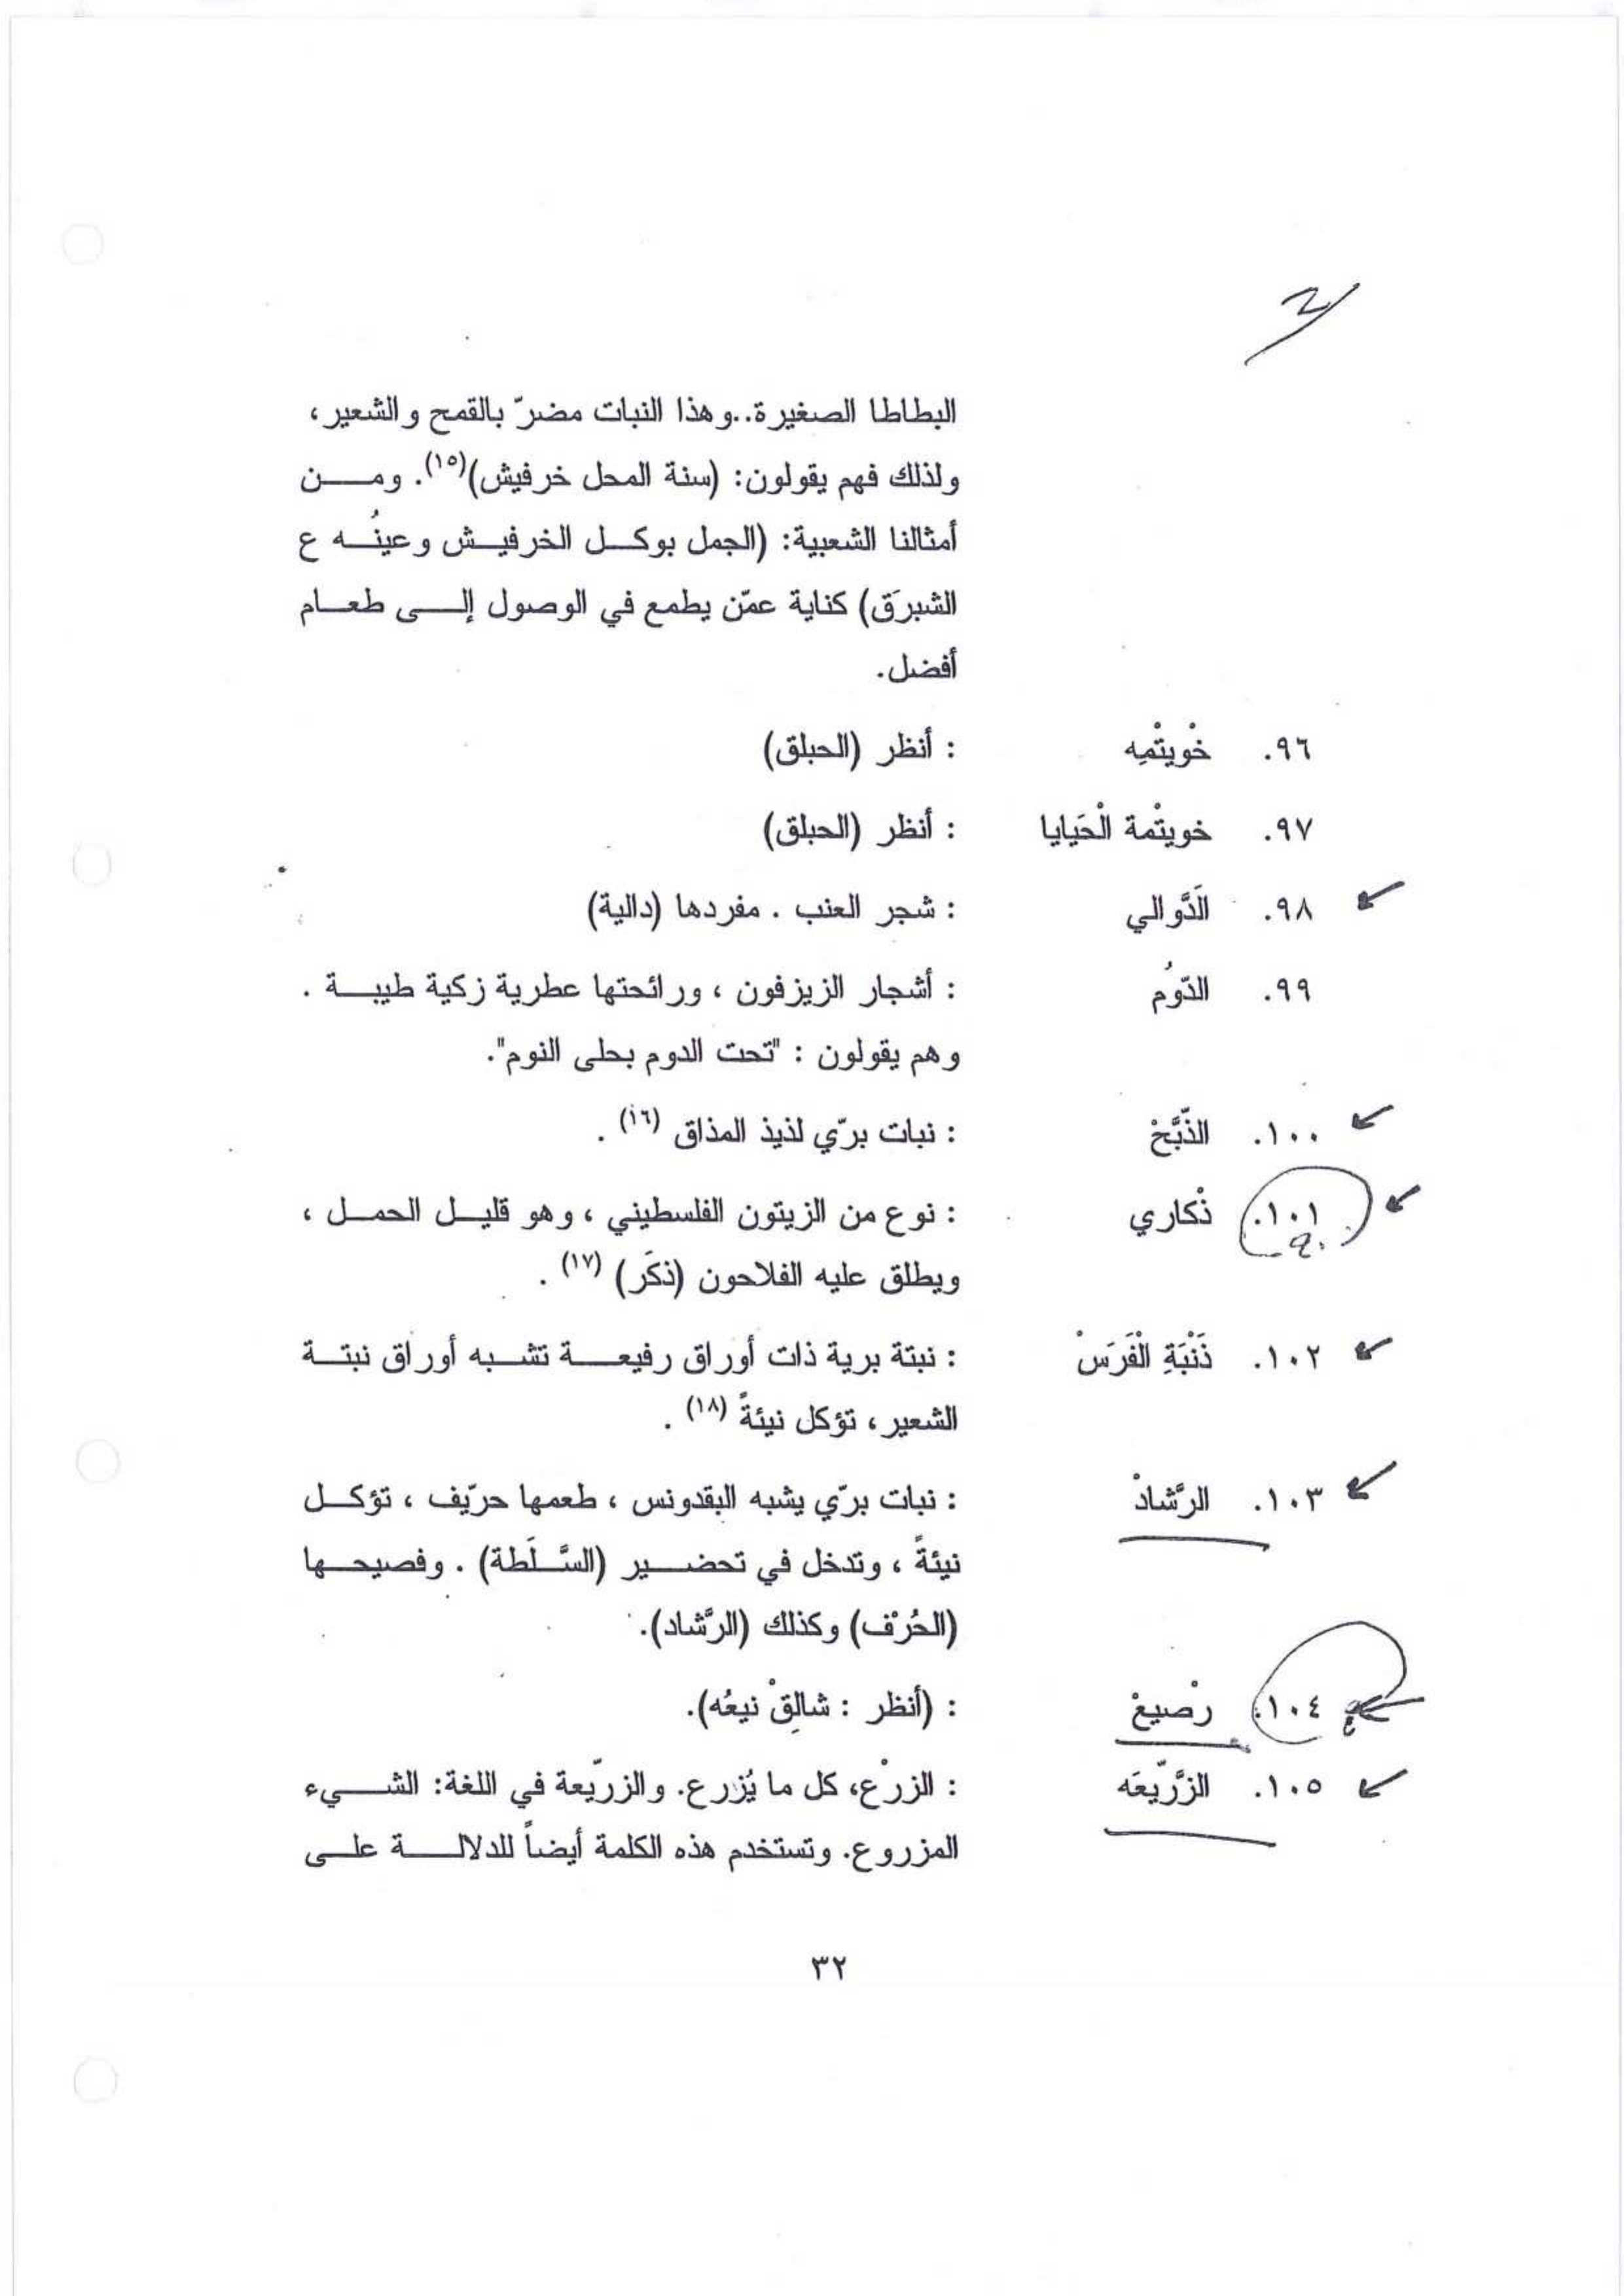 البطاطا الصغيرة..وهذا النبات مضرّ بالقمح والشعير،
ولذلك فهم يقولون: (سنة المحل خرفيش)(١٥). ومن
أمثالنا الشعبية: (الجمل بوكل الخرفيش وعينُه ع
الشبرَق) كناية عمّن يطمع في الوصول إلى طعام
أفضل.
٩٦. خْويتْمِه : أنظر (الحبلق)
٩٧. خويتْمة الْحَيايا : أنظر (الحبلق)
٩٨. الَدَّوالي : شجر العنب . مفردها (دالية)
٩٩. الدّومُ : أشجار الزيزفون ، ورائحتها عطرية زكية طيبة .
وهم يقولون : "تحت الدوم بحلى النوم".
١٠٠. الذّبَّحْ : نبات برّي لذيذ المذاق (١٦) .
١٠١. ذْكاري : نوع من الزيتون الفلسطيني ، وهو قليل الحمل ،
ويطلق عليه الفلاحون (ذكَر) (١٧) .
١٠٢. ذَنْبَةِ الْفَرَسْ : نبتة برية ذات أوراق رفيعة تشبه أوراق نبتة
الشعير ، تؤكل نيئةً (١٨) .
١٠٣. الرَّشادْ : نبات برّي يشبه البقدونس ، طعمها حرّيف ، تؤكل
نيئةً ، وتدخل في تحضير (السَّلَطة) . وفصيحها
(الحُرْف) وكذلك (الرَّشاد).
١٠٤. رْصيعْ : (أنظر : شالِقْ نيعُه).
١٠٥. الزَّرّيعَه : الزرْع، كل ما يُزرع. والزرّيعة في اللغة: الشيء
المزروع. وتستخدم هذه الكلمة أيضاً للدلالة على
٣٢